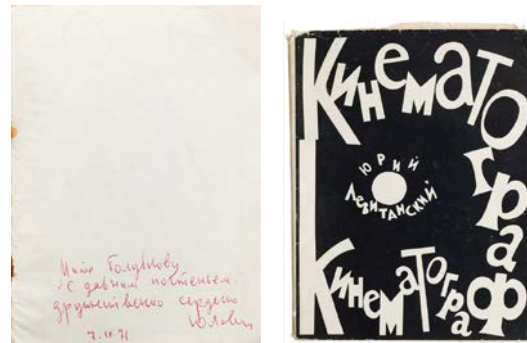 с давним почтеньем.
дружественно сердечно
7.IX 71
Кинематограф
Юрий
Левитанский
Кинематограф